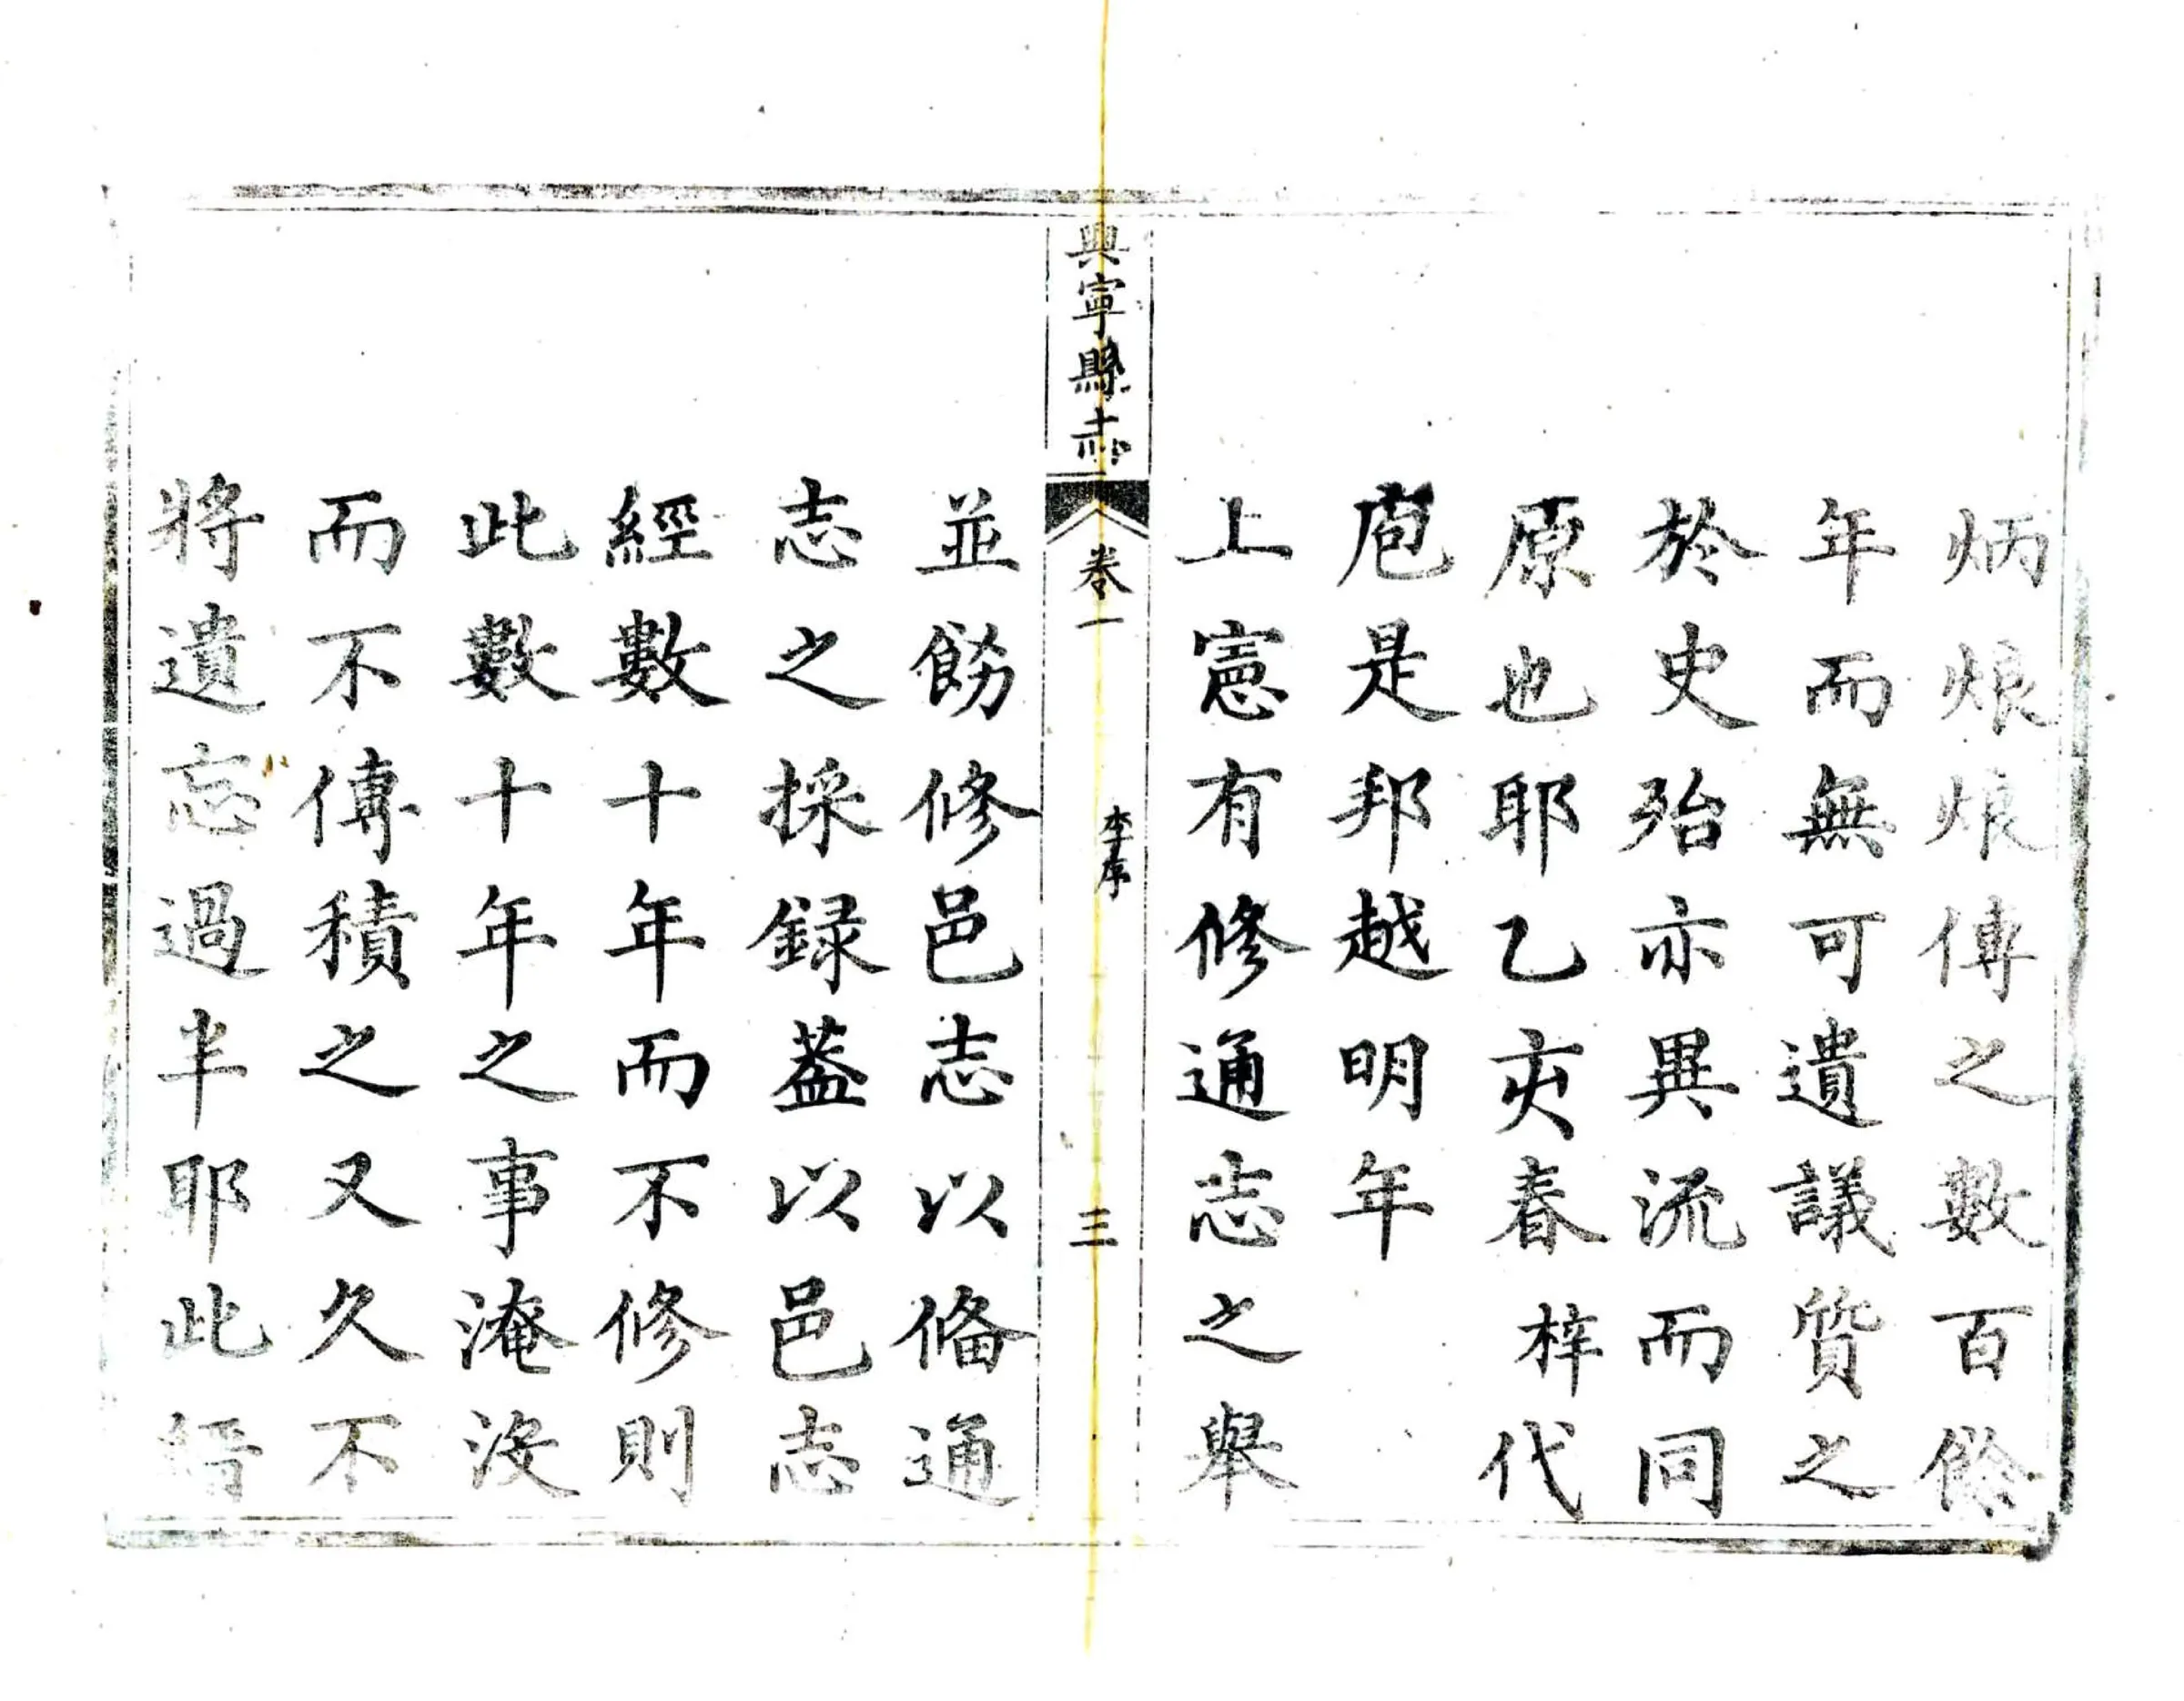 炳烺烺傳之數百餘
年而無可遺議質之
於史殆亦異流而同
原也耶乙亥春梓代
庖是邦越明年
上憲有修通志之舉
興寧縣志
卷一
李序
三
並飭修邑志以偹通
志之採録葢以邑志
經數十年而不修則
此數十年之事淹没
而不傳積之又久不
將遺忘過半耶此